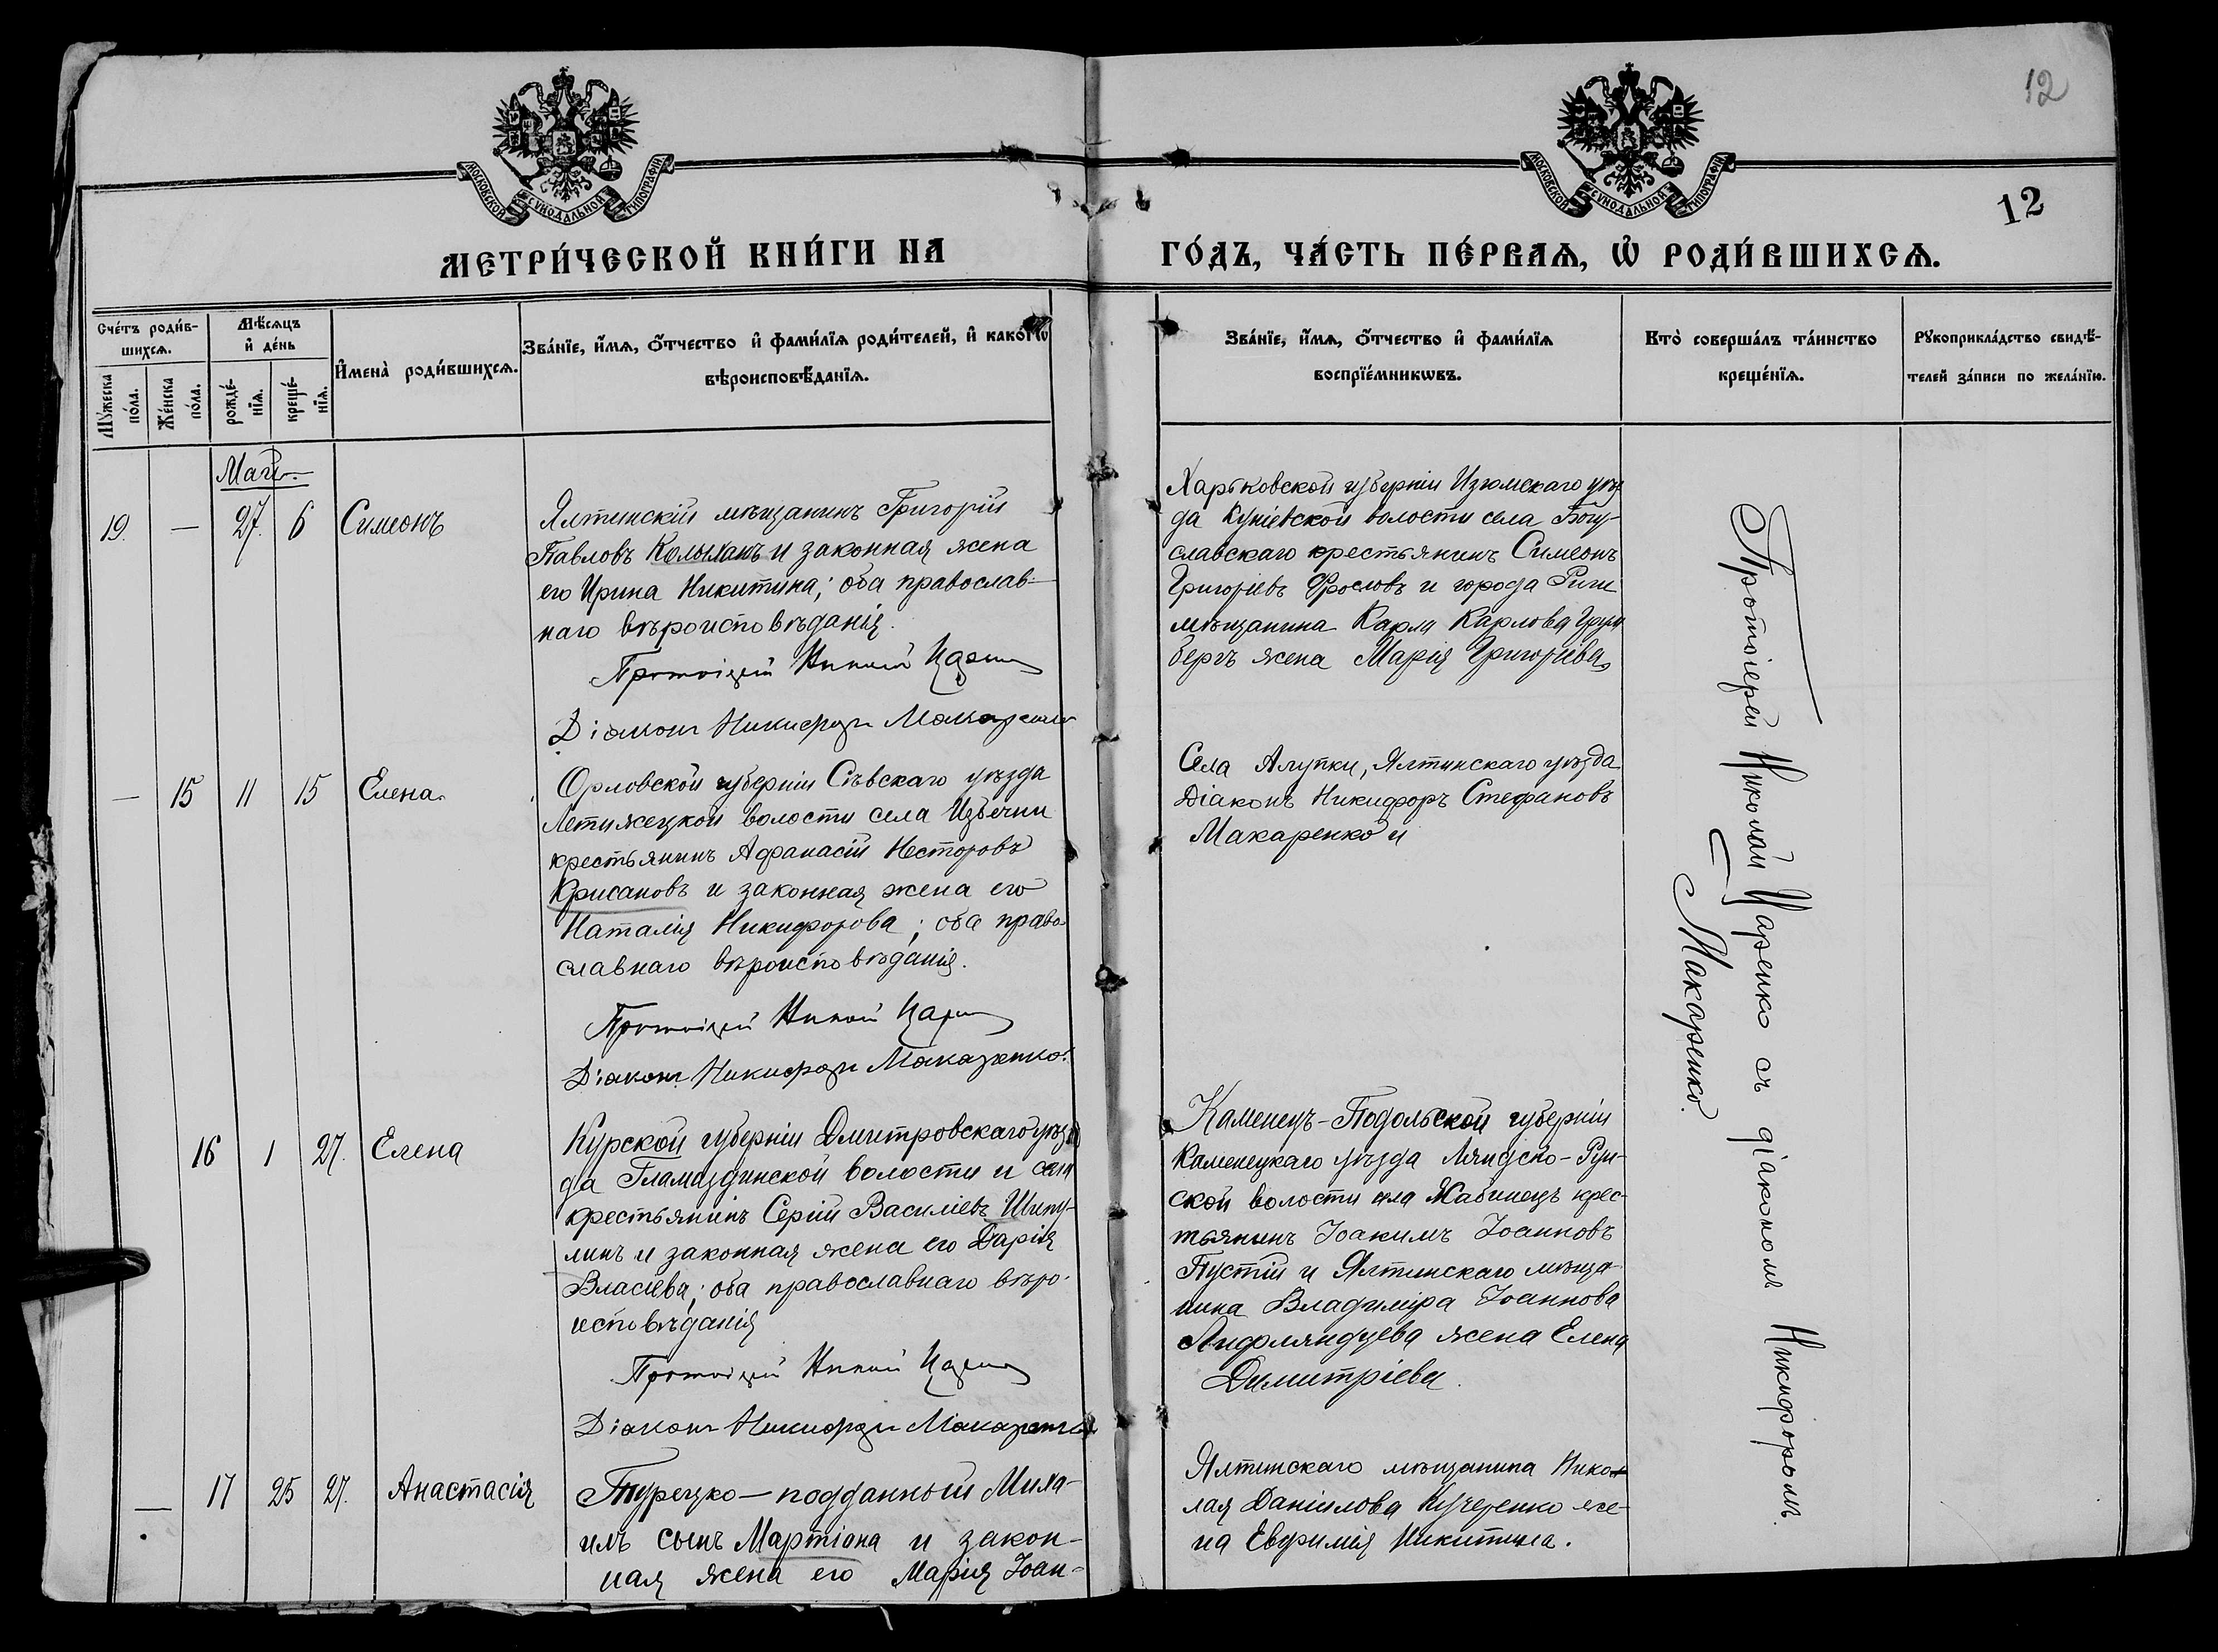 12
МОСКОВСКОЙ СѴНОДАЛЬНОЙ ТИПОГРАФІИ
МОСКОВСКОЙ СѴНОДАЛЬНОЙ ТИПОГРАФІИ
12
МЕТРИ́ЧЕСКОЙ КНИ́ГИ НА
ГО́ДЪ, ЧА́СТЬ ПЕ́РВАѦ, Ѽ РОДИ́ВШИХСѦ.
Сче́тъ роди́в-
шихсѧ.
Мꙋ́жеска
по́ла.
Же́нска
по́ла.
Мѣ́сѧцъ
и҆ де́нь
рожде́-
нїѧ.
креще́-
нїѧ.
И҆мена̀ роди́вшихсѧ.
Зва́нїе, и҆́мѧ, ѻ҆́тчество и҆ фами́лїѧ роди́телей, и҆ како́гѡ
вѣроисповѣ́данїѧ.
Зва́нїе, и҆́мѧ, ѻ҆́тчество и҆ фами́лїѧ
воспрїе́мникѡвъ.
Кто̀ соверша́лъ та́инство
креще́нїѧ.
Рꙋкоприкла́дство свидѣ́-
телей за́писи по жела́нїю.
Май
19. — 27. 6 Симеонъ
Ялтинскій мѣщанинъ Григорій
Павловъ и законная жена
его Ирина Никитина; оба православ-
наго вѣроисповѣданія.
Протоіерей Николай Царенко
Діаконъ Никифоръ Макаренко
Харьковской губерніи Изюмскаго уѣз-
да Куніевской волости села Богу-
славскаго крестьянинъ Симеонъ
Григоріевъ Фроловъ и города Риги
мѣщанина Карла Карлова Грун
бергъ жена Марія Григоріева
— 15 11 15 Елена
Орловской губерніи Сѣвскаго уѣзда
волости села
крестьянинъ Афанасій Несторовъ
Крисановъ и законная жена его
Наталія Никифорова; оба право-
славнаго вѣроисповѣданія.
Протоіерей Николай Царенко
Діаконъ Никифоръ Макаренко
Села Алупки, Ялтинскаго уѣзда
Діаконъ Никифоръ Стефановъ
Макаренко и
16 1 27. Елена
Курской губерніи Дмитровскаго уѣз
да Гламаздинской волости и села
крестьянинъ Сергій Василіевъ Шипу-
линъ и законная жена его Дарія
Власіева; оба православнаго вѣро-
исповѣданія
Протоіерей Николай Царенко
Діаконъ Никифоръ Макаренко
Каменецъ-Подольской губерніи
Каменецкаго уѣзда Рун-
ской волости села Жабинецъ крес-
тьянинъ Іоакимъ Іоанновъ
Пустій и Ялтинскаго мѣща-
нина Владиміра Іоаннова
Лифляндцева жена Елена
Димитріева.
— 17 25 27. Анастасія
Турецко-подданный Миха-
илъ сынъ Мартіона и закон-
ная жена его Марія Іоан-
Ялтинскаго мѣщанина Нико-
лая Даніилова Кучеренко же-
на Евфимія Никитина.
Протоіерей Николай Царенко съ діакономъ Никифоромъ
Макаренко.